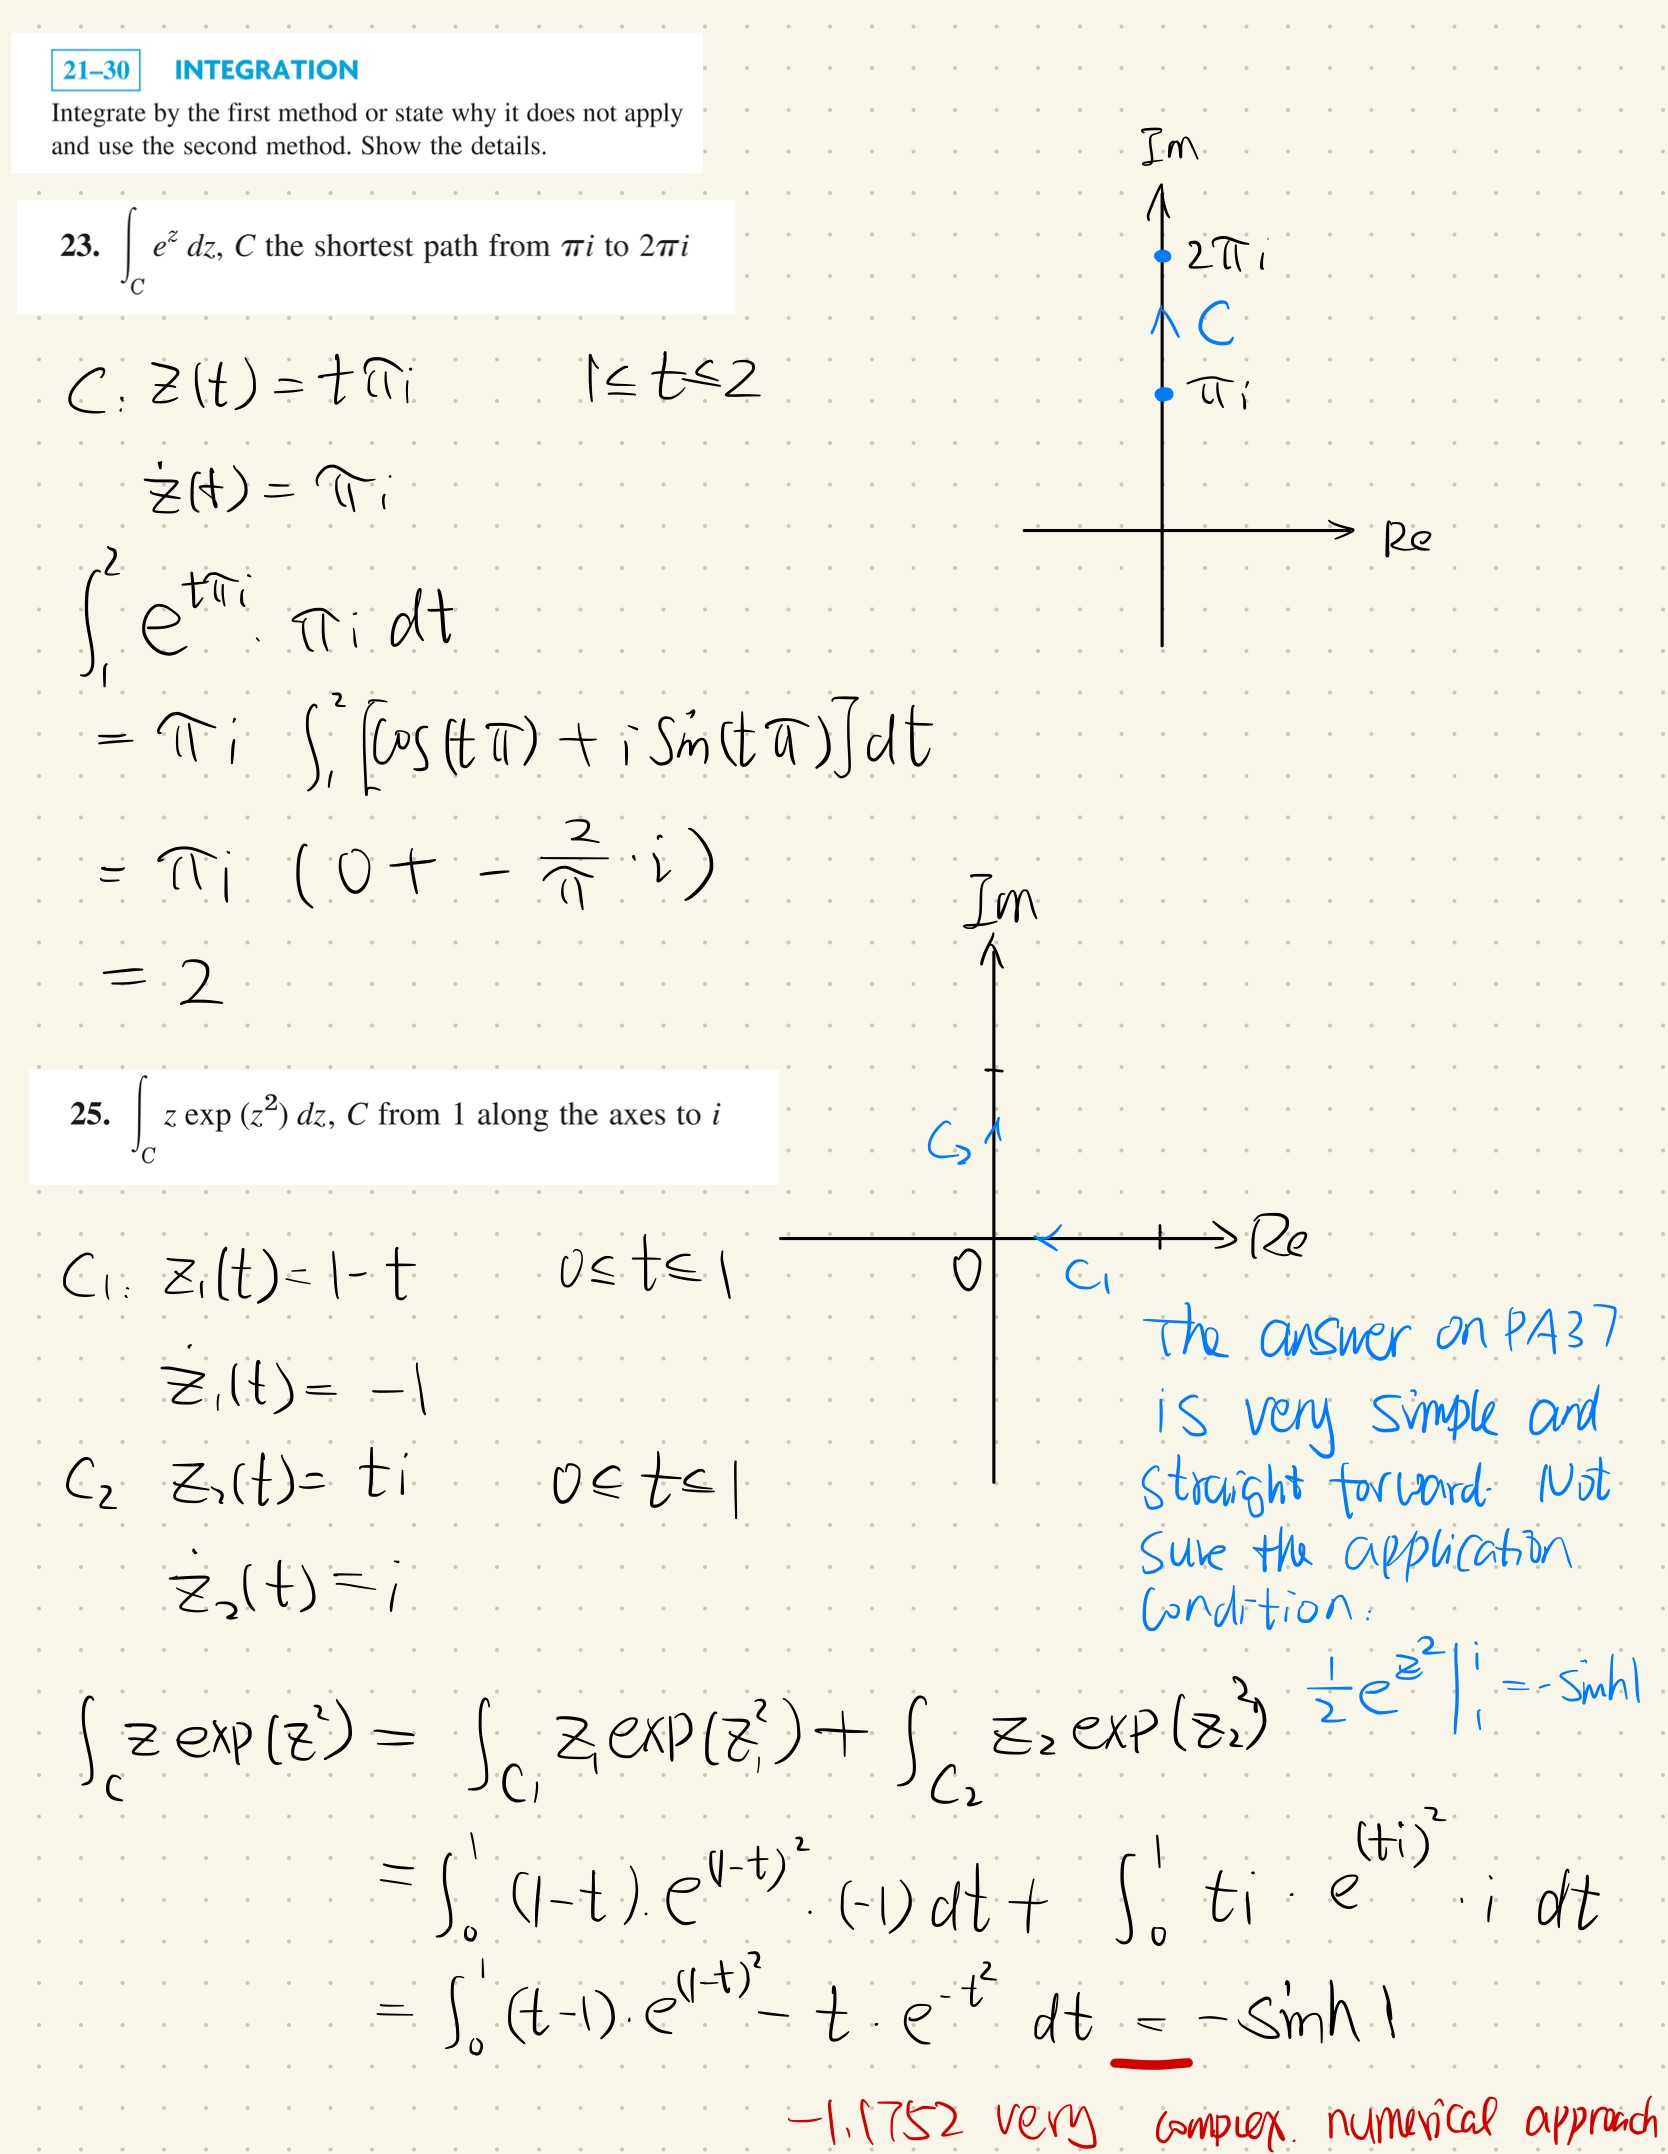 21–30 INTEGRATION
Integrate by the first method or state why it does not apply
and use the second method. Show the details.
23. ∫_C e^z dz, C the shortest path from πi to 2πi
Im
2πi
C
πi
Re
C: z(t) = tπi 1 ≤ t ≤ 2
ż(t) = πi
∫_1^2 e^{tπi} · πi dt
= πi ∫_1^2 [cos(tπ) + i sin(tπ)] dt
= πi (0 + - 2/π · i)
= 2
25. ∫_C z exp (z²) dz, C from 1 along the axes to i
Im
C₂
0
C₁
Re
C₁: z₁(t) = 1 - t 0 ≤ t ≤ 1
ż₁(t) = -1
C₂ z₂(t) = ti 0 ≤ t ≤ 1
ż₂(t) = i
The answer on PA37
is very simple and
straight forward. Not
sure the application
condition:
½ e^{z²} |_1^i = - sinh 1
∫_C z exp(z²) = ∫_{C₁} z₁ exp(z₁²) + ∫_{C₂} z₂ exp(z₂²)
= ∫_0^1 (1-t) · e^{(1-t)²} · (-1) dt + ∫_0^1 ti · e^{(ti)²} · i dt
= ∫_0^1 (t-1) · e^{(1-t)²} - t · e^{-t²} dt = - sinh 1
-1.1752 very complex. numerical approach